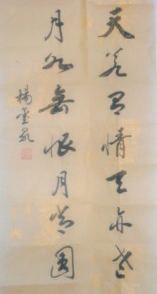 天若有情天亦老
月如無恨月常圓
楊雲龍